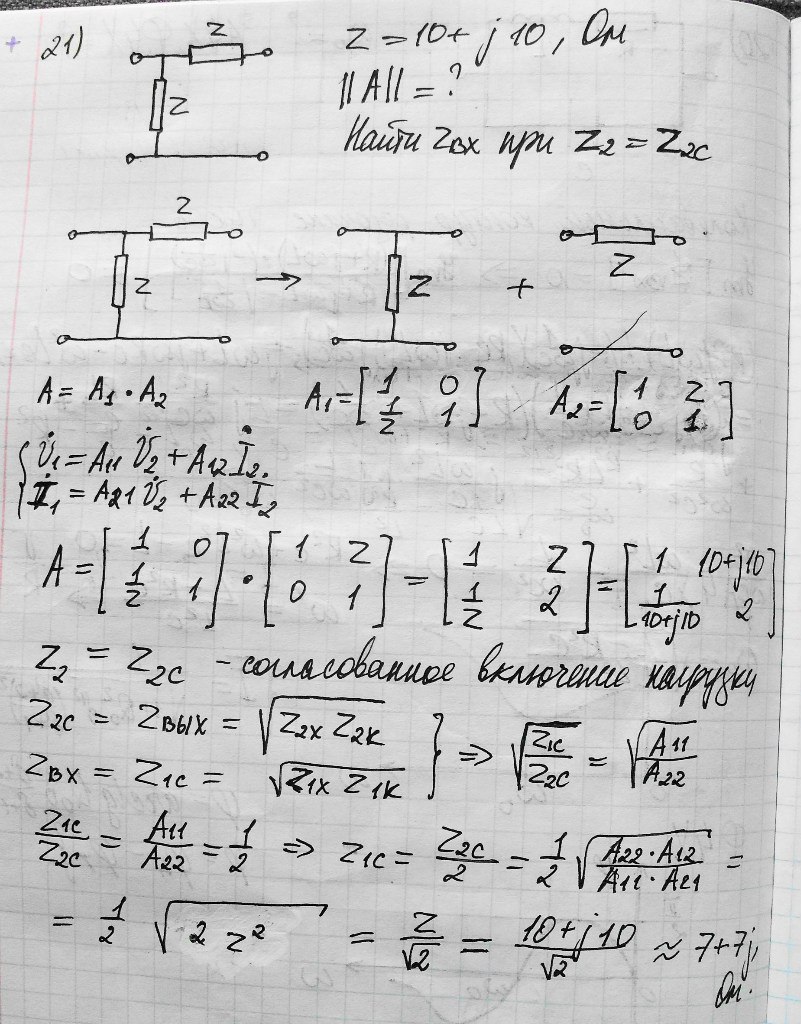 + 21) Z Z
Z = 10 + j 10, Ом
||A|| = ?
Найти Zвх при Z₂ = Z₂c
Z Z → Z + Z
A = A₁ · A₂ A₁ = [1 0; 1/Z 1] A₂ = [1 Z; 0 1]
{ U̇₁ = A₁₁ U̇₂ + A₁₂ İ₂.
İ₁ = A₂₁ U̇₂ + A₂₂ İ₂
A = [1 0; 1/Z 1] · [1 Z; 0 1] = [1 Z; 1/Z 2] = [1 10+j10; 1/(10+j10) 2]
Z₂ = Z₂c - согласованное включение нагрузки
Z₂c = Zвых = √(Z₂х Z₂к)
Zвх = Z₁c = √(Z₁х Z₁к) } => √(Z₁c/Z₂c) = √(A₁₁/A₂₂)
Z₁c/Z₂c = A₁₁/A₂₂ = 1/2 => Z₁c = Z₂c/2 = 1/2 √(A₂₂·A₁₂/A₁₁·A₂₁) =
= 1/2 √(2 Z²) = Z/√2 = (10+j10)/√2 ≈ 7+7j,
Ом.